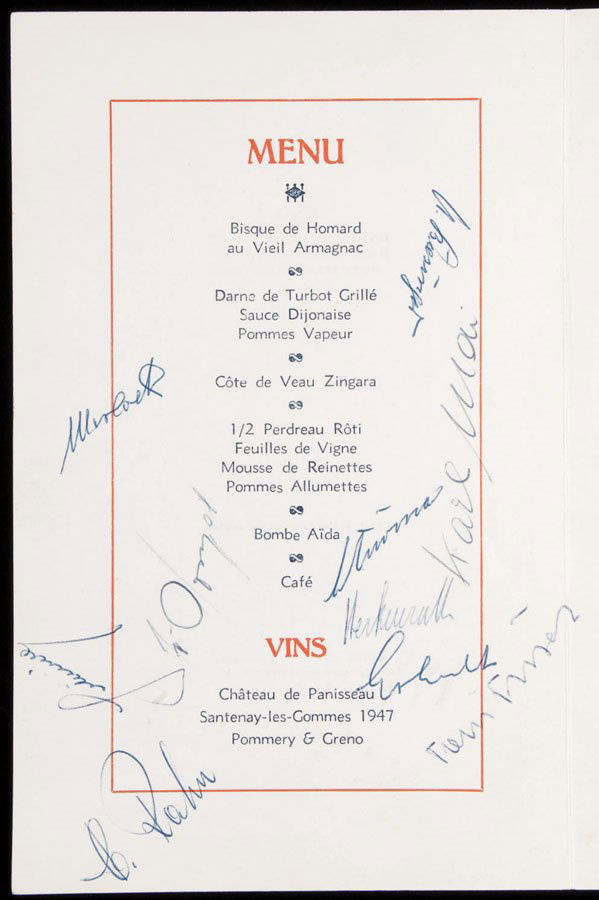 MENU
Bisque de Homard
au Vieil Armagnac
Darne de Turbot Grillé
Sauce Dijonaise
Pommes Vapeur
Côte de Veau Zingara
1/2 Perdreau Rôti
Feuilles de Vigne
Mousse de Reinettes
Pommes Allumettes
Bombe Aïda
Café
Karl Mai
Herkenrath
VINS
Château de Panisseau
Santenay-les-Gommes 1947
Pommery & Greno
Toni Turek
C. Rahn